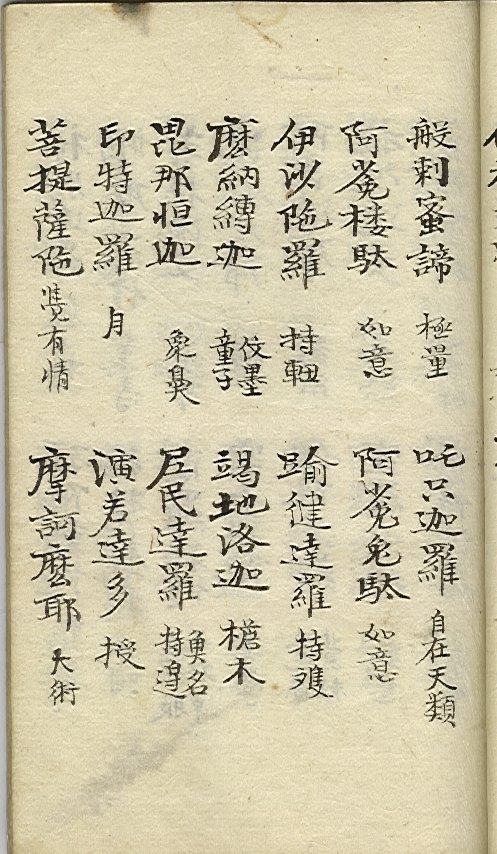 般剌蜜諦 極量 吒只迦羅 自在天類
阿㝹楼駄 如意 阿㝹兔駄 如意
伊沙陁羅 持軸 踰健達羅 持雙
麽納縛迦 仗墨童子 竭地洛迦 檐木
毘那恒迦 象鼻 尼民達羅 持邊魚名
印特迦羅 月 演若達多 授
菩提薩陁 覺有情 摩訶麽耶 大術